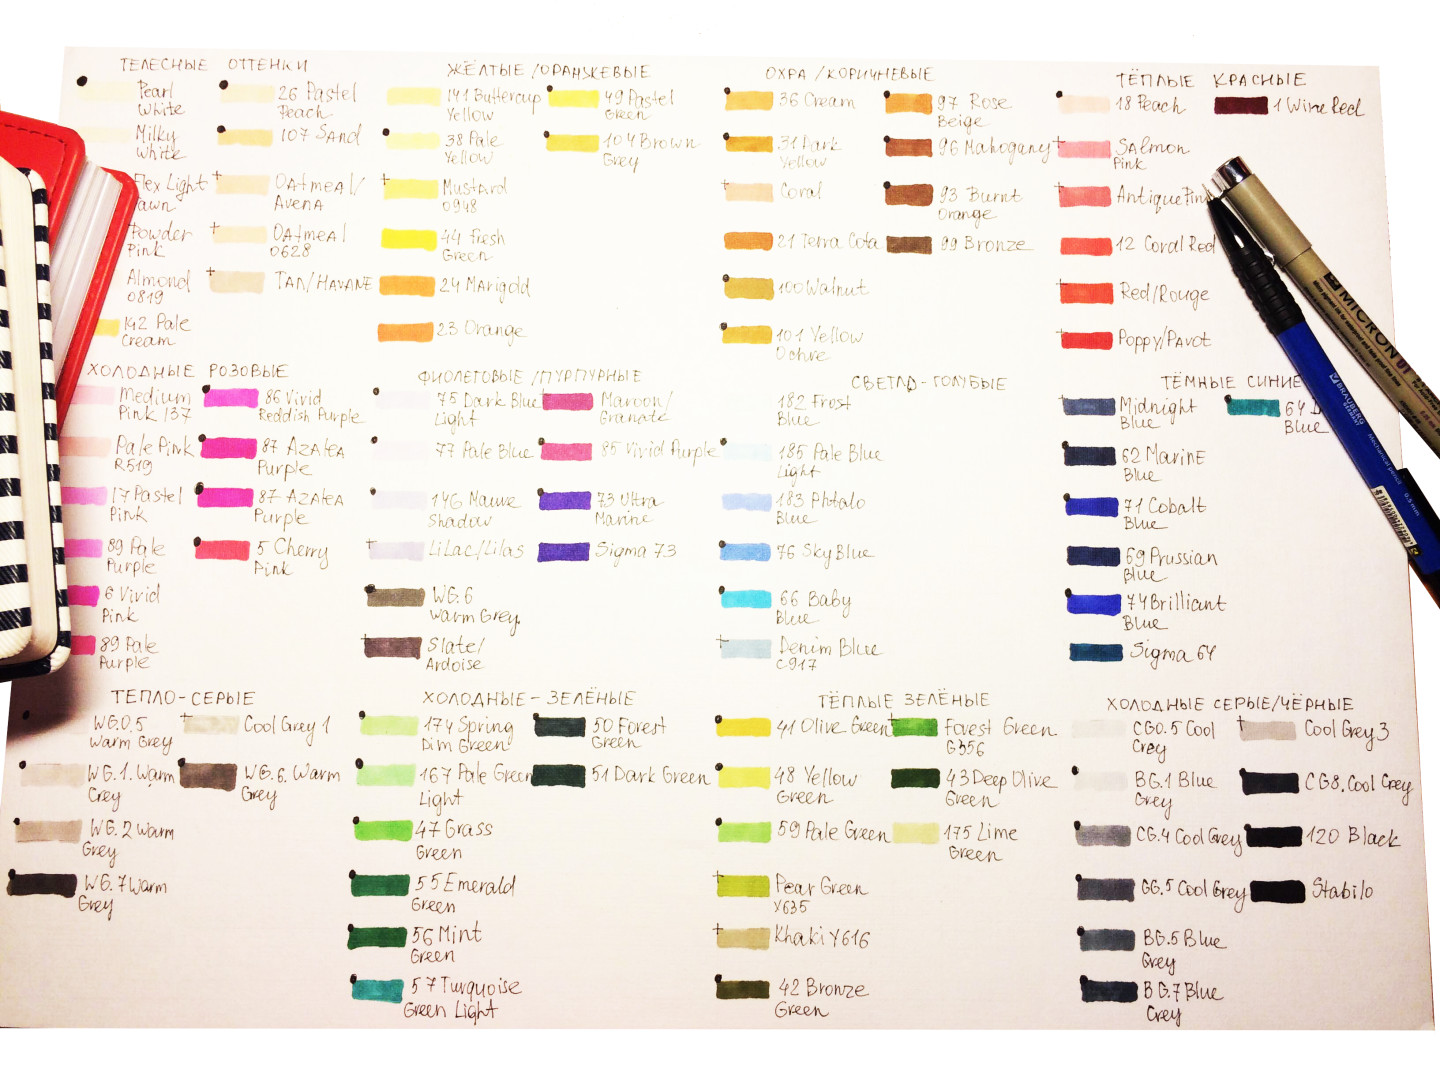 ТЕЛЕСНЫЕ ОТТЕНКИ
Pearl
White
Milky
White
Flex Light
Powder
Pink
Almond
0819
142 Pale
Cream
26 Pastel
Peach
107 Sand
Oatmeal/
Avena
Oatmeal
0628
TAN/HAVANE
ЖЁЛТЫЕ/ОРАНЖЕВЫЕ
141 Buttercup
Yellow
38 Pale
Yellow
Mustard
0948
44 Fresh
Green
24 Marigold
23 Orange
49 Pastel
Green
104 Brown
Grey
ОХРА/КОРИЧНЕВЫЕ
36 Cream
31 Dark
Yellow
Coral
21 Terra Cota
100 Walnut
101 Yellow
Ochre
97 Rose
Beige
96 Mahogany
93 Burnt
Orange
99 Bronze
ТЁПЛЫЕ КРАСНЫЕ
18 Peach
Salmon
Pink
Antique Pin
12 Coral Red
Red/Rouge
Poppy/Pavot
1 Wine Red
ХОЛОДНЫЕ РОЗОВЫЕ
Medium
Pink 137
Pale Pink
R519
17 Pastel
Pink
89 Pale
Purple
6 Vivid
Pink
89 Pale
Purple
86 Vivid
Reddish Purple
87 Azalea
Purple
87 Azalea
Purple
5 Cherry
Pink
ФИОЛЕТОВЫЕ/ПУРПУРНЫЕ
75 Dark Blue
Light
77 Pale Blue
146 Mauve
Shadow
Lilac/Lilas
WG.6
Warm Grey.
Slate/
Ardoise
Maroon/
Granate
85 Vivid Purple
73 Ultra
Marine
Sigma 73
СВЕТЛО-ГОЛУБЫЕ
182 Frost
Blue
185 Pale Blue
Light
183 Phtalo
Blue
76 Sky Blue
66 Baby
Blue
Denim Blue
C917
ТЁМНЫЕ СИНИЕ
Midnight
Blue
62 Marine
Blue
71 Cobalt
Blue
69 Prussian
Blue
74 Brilliant
Blue
Sigma 64
64
Blue
ТЕПЛО-СЕРЫЕ
WG0.5
Warm Grey
WG.1. Warm
Grey
WG.2 Warm
Grey
WG.7 Warm
Grey
Cool Grey 1
WG.6. Warm
Grey
ХОЛОДНЫЕ-ЗЕЛЁНЫЕ
174 Spring
Dim Green
167 Pale Green
Light
47 Grass
Green
55 Emerald
Green
56 Mint
Green
57 Turquoise
Green Light
50 Forest
Green
51 Dark Green
ТЁПЛЫЕ ЗЕЛЁНЫЕ
41 Olive Green
48 Yellow
Green
59 Pale Green
Pear Green
Y635
Khaki Y616
42 Bronze
Green
Forest Green
G356
43 Deep Olive
Green
175 Lime
Green
ХОЛОДНЫЕ СЕРЫЕ/ЧЁРНЫЕ
CG0.5 Cool
Grey
BG.1 Blue
Grey
CG.4 Cool Grey
GG.5 Cool Grey
BG.5 Blue
Grey
BG.7 Blue
Grey
Cool Grey 3
CG8. Cool Grey
120 Black
Stabilo
MICRON 01
BRAUBERG
Mechanical pencil 0.5 mm